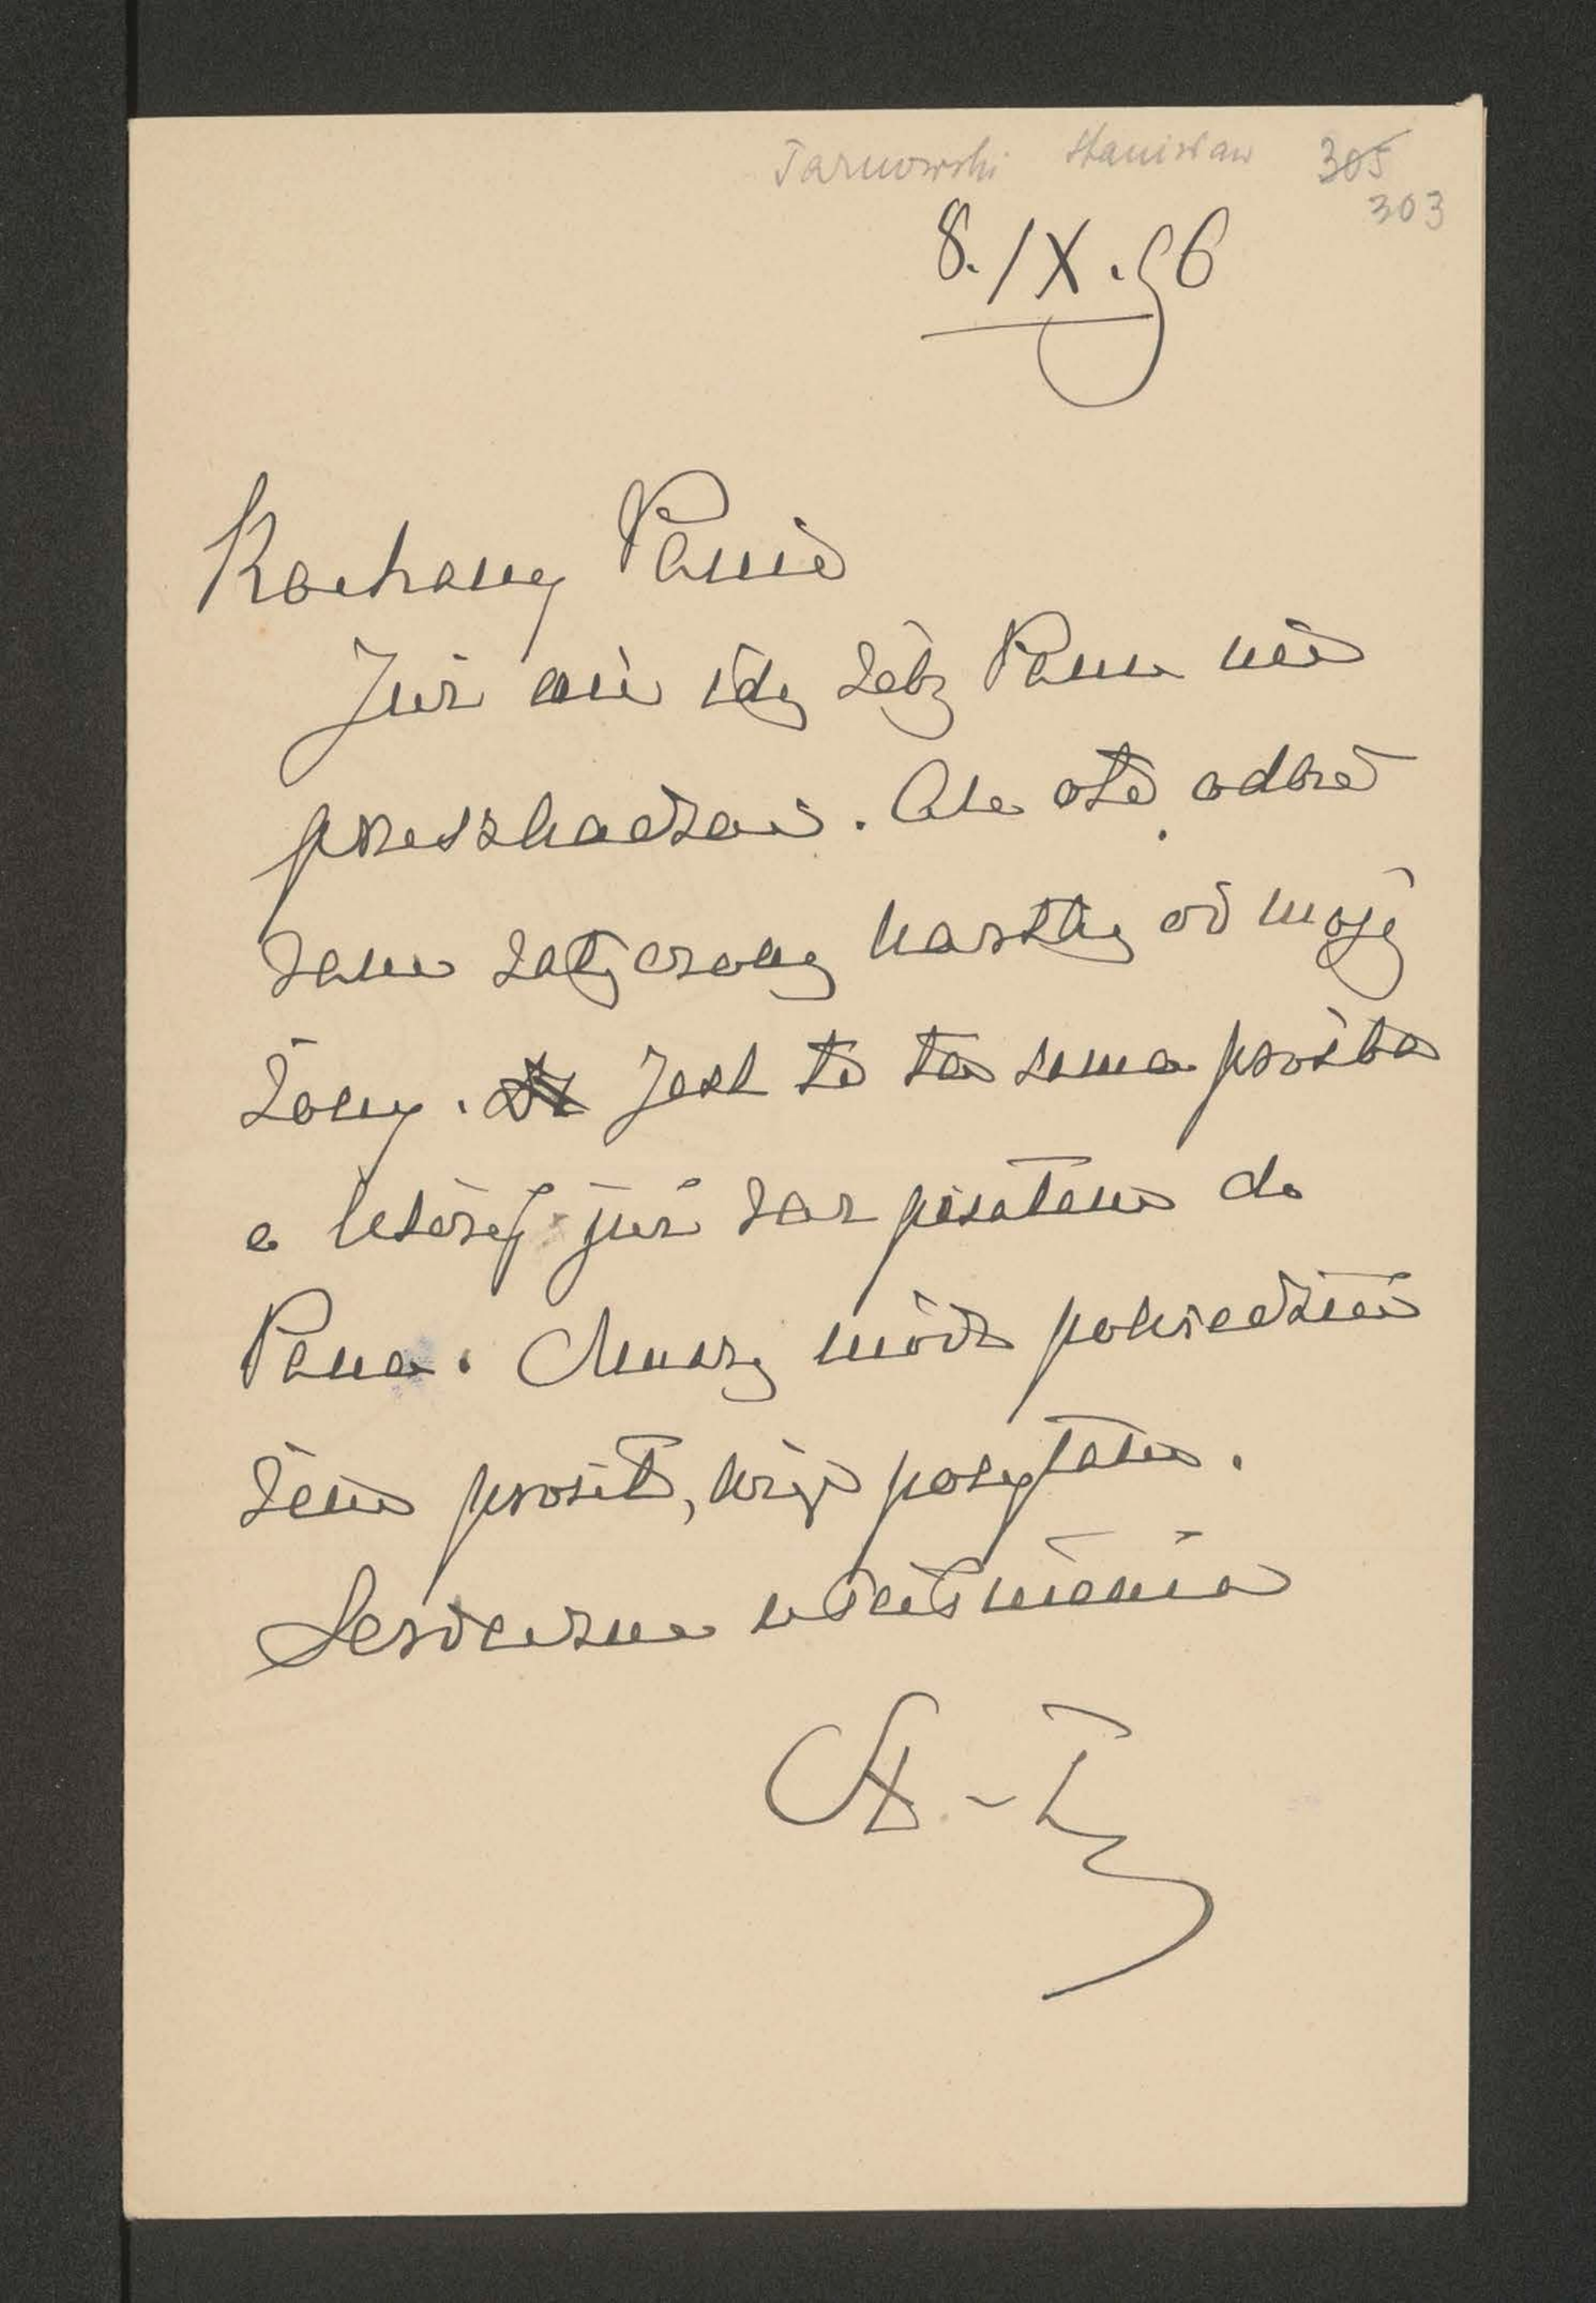 Tarnowski Stanisław 305
303
8. IX. 96
Kochany Panie
Już nie idę żeby Panu nie
przeszkadzać. Ale oto odbie
ram załączoną kartkę od mojej
żony. Jest to ta sama prośba
o której już raz pisałem do
Pana. Muszę módz powiedzieć
żem prosił, więc posyłam.
Serdeczne uściśnienia
St. T